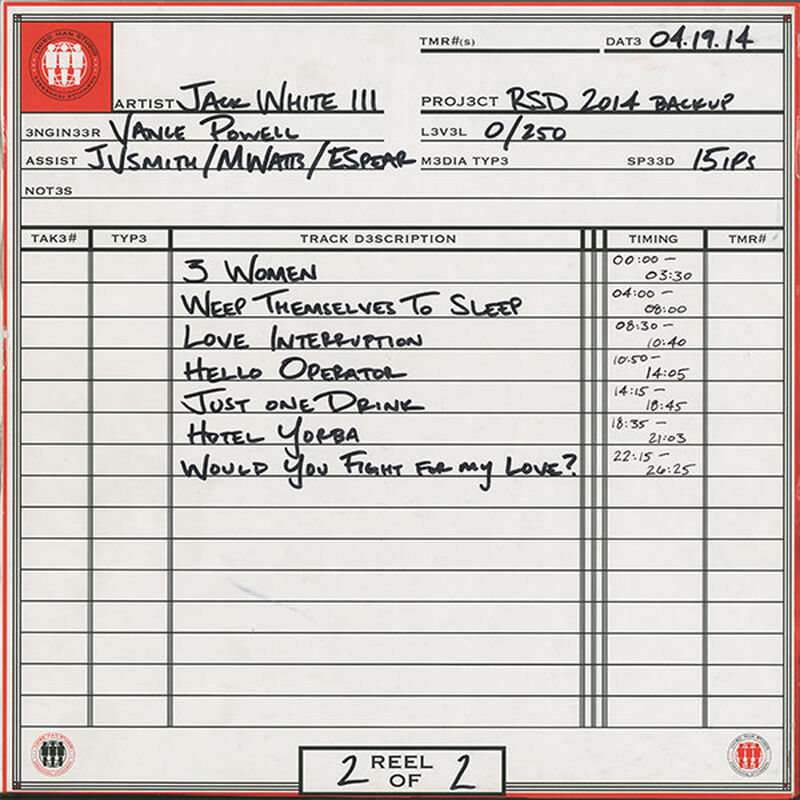 THIRD MAN STUDIO
TMR#(s) DAT3 04.19.14
ARTIST Jack White III PROJ3CT RSD 2014 BACKUP
3NGIN33R Vance Powell L3V3L 0/250
ASSIST JVSmith/MWatts/ESpear M3DIA TYP3 SP33D 15 ips
NOT3S
TAK3# TYP3 TRACK D3SCRIPTION TIMING TMR#
3 Women 00:00 - 03:30
Weep Themselves To Sleep 04:00 - 08:00
Love Interruption 08:30 - 10:40
Hello Operator 10:50 - 14:05
Just one Drink 14:15 - 18:45
Hotel Yorba 18:35 - 21:03
Would You Fight for my Love? 22:15 - 26:25
2 REEL OF 2